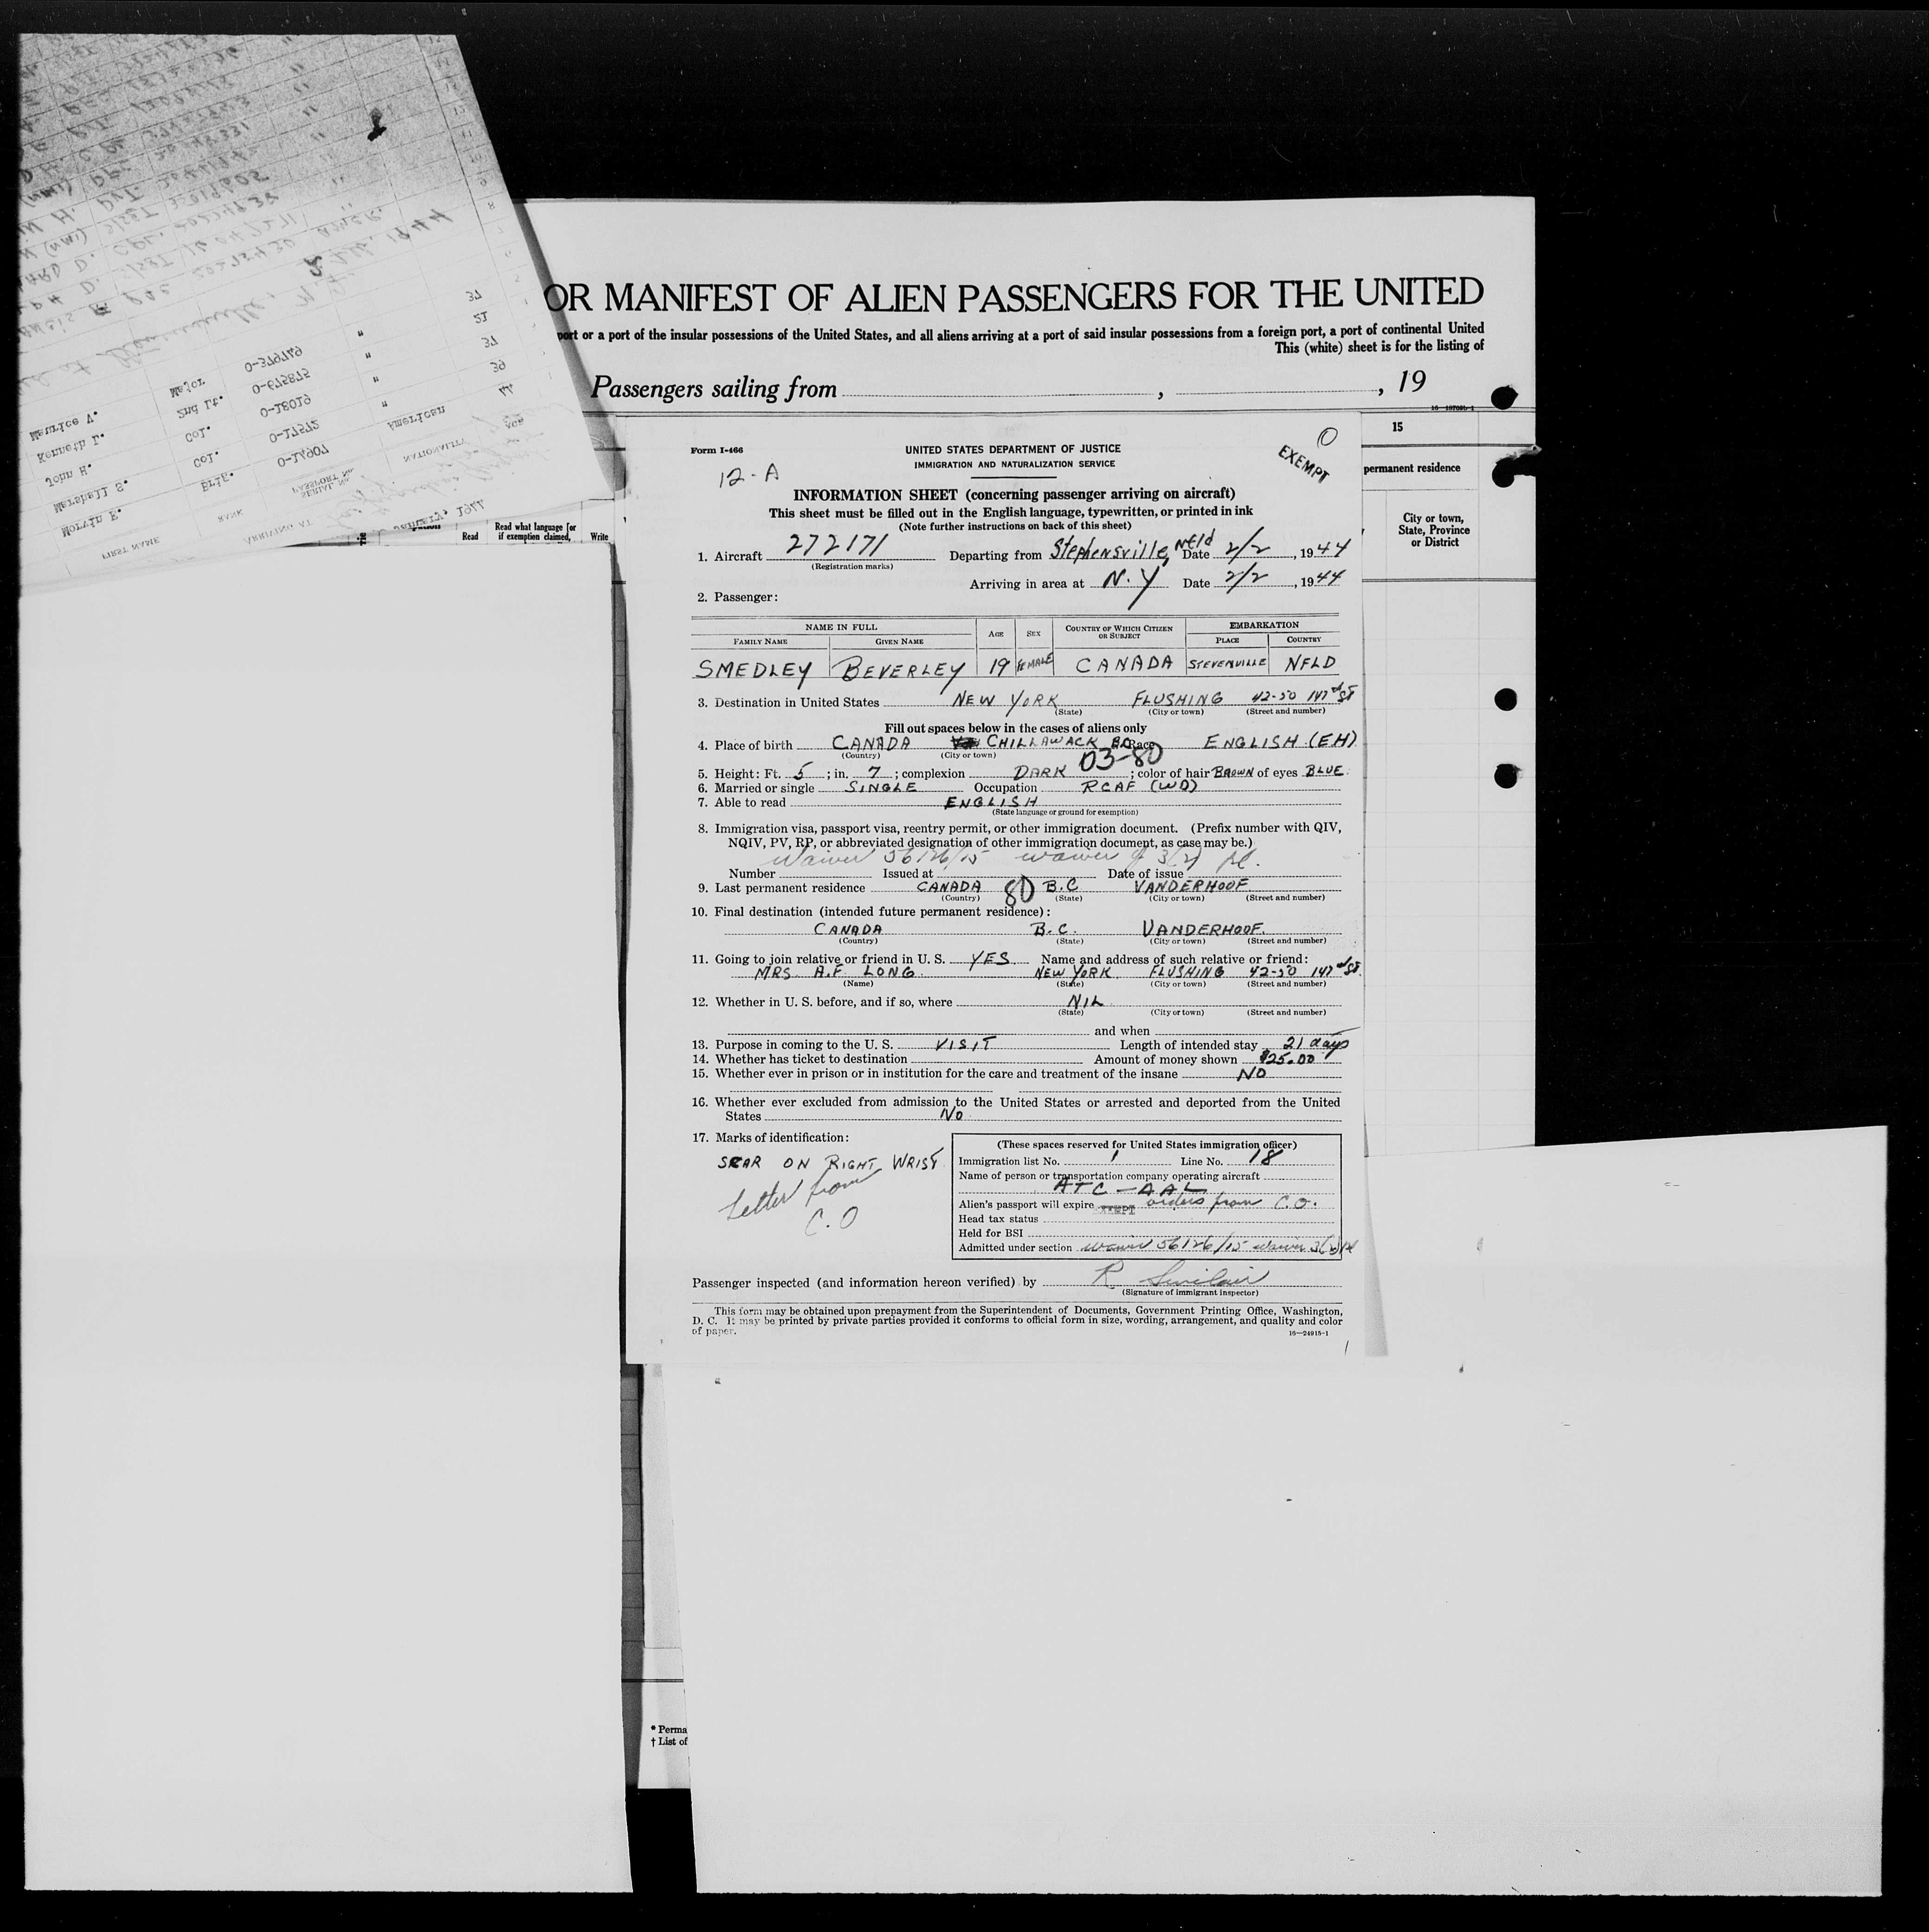 OR MANIFEST OF ALIEN PASSENGERS FOR THE UNITED
port or a port of the insular possessions of the United States, and all aliens arriving at a port of said insular possessions from a foreign port, a port of continental United
This (white) sheet is for the listing of
Passengers sailing from , , 19
15
permanent residence
City or town,
State, Province
or District
Read
Read what language [or
if exemption claimed,
Write
Form I-466
12-A
UNITED STATES DEPARTMENT OF JUSTICE
IMMIGRATION AND NATURALIZATION SERVICE
O
EXEMPT
INFORMATION SHEET (concerning passenger arriving on aircraft)
This sheet must be filled out in the English language, typewritten, or printed in ink
(Note further instructions on back of this sheet)
1. Aircraft 272171 Departing from Stephensville, Nfld Date 2/2, 1944
(Registration marks)
Arriving in area at N.Y Date 2/2, 1944
2. Passenger:
NAME IN FULL AGE SEX COUNTRY OF WHICH CITIZEN OR SUBJECT EMBARKATION
FAMILY NAME GIVEN NAME PLACE COUNTRY
SMEDLEY BEVERLEY 19 FEMALE CANADA STEVENVILLE NFLD
3. Destination in United States NEW YORK FLUSHING 42-50 147 St
(State) (City or town) (Street and number)
Fill out spaces below in the cases of aliens only
4. Place of birth CANADA CHILLAWACK B.C. Race ENGLISH (EH)
(Country) (City or town)
03-80
5. Height: Ft. 5; in. 7; complexion DARK; color of hair BROWN of eyes BLUE
6. Married or single SINGLE Occupation RCAF (WD)
7. Able to read ENGLISH
(State language or ground for exemption)
8. Immigration visa, passport visa, reentry permit, or other immigration document. (Prefix number with QIV,
NQIV, PV, RP, or abbreviated designation of other immigration document, as case may be.)
Waiver 56126/15 waiver of 3(2)
Number Issued at Date of issue
9. Last permanent residence CANADA 80 B.C VANDERHOOF
(Country) (State) (City or town) (Street and number)
10. Final destination (intended future permanent residence):
CANADA B.C. VANDERHOOF.
(Country) (State) (City or town) (Street and number)
11. Going to join relative or friend in U. S. YES Name and address of such relative or friend:
MRS A.F. LONG NEW YORK FLUSHING 42-50 147 St.
(Name) (State) (City or town) (Street and number)
12. Whether in U. S. before, and if so, where NIL
(State) (City or town) (Street and number)
and when
13. Purpose in coming to the U. S. VISIT Length of intended stay 21 days
14. Whether has ticket to destination Amount of money shown $25.00
15. Whether ever in prison or in institution for the care and treatment of the insane NO
16. Whether ever excluded from admission to the United States or arrested and deported from the United
States No
17. Marks of identification:
SCAR ON RIGHT WRIST
Letter from
C.O
(These spaces reserved for United States immigration officer)
Immigration list No. 1 Line No. 18
Name of person or transportation company operating aircraft
ATC-AAL
Alien's passport will expire EXEMPT orders from C.O.
Head tax status
Held for BSI
Admitted under section waiver 56126/15 waiver 3(2)
Passenger inspected (and information hereon verified) by R Sinclair
(Signature of immigrant inspector)
This form may be obtained upon prepayment from the Superintendent of Documents, Government Printing Office, Washington,
D. C. It may be printed by private parties provided it conforms to official form in size, wording, arrangement, and quality and color
of paper.
16—24915-1
* Perma
† List of
FIRST NAME RANK SERIAL No. PASSPORT No. NATIONALITY AGE
Morvin E. Brig. 0-14907 American 44
Marshall S. Col. 0-17572 " 39
John H. Col. 0-18019 " 37
Kenneth L. 2nd Lt. 0-675875 " 21
Maurice V. Major 0-379749 " 37